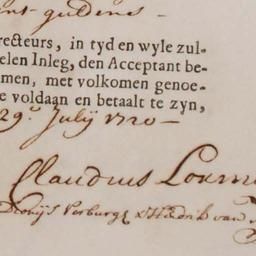 nt-guldens
recteurs, in tyd en wyle zul-
elen Inleg, den Acceptant be-
men, met volkomen genoe-
e voldaan en betaalt te zyn,
29 Julij 1720
Claudius
Dionijs Verburg & Hendrik van